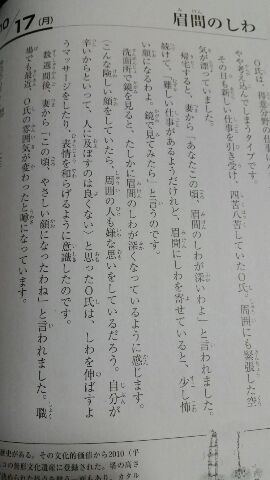 17(月)
眉間のしわ
O氏は、得意分野の仕事
やや考え込んでしまうタイプです。
その日も新しい仕事を引き受け、四苦八苦していたO氏。周囲にも緊張した空
気が漂っていました。
帰宅すると、妻から「あなたこの頃、眉間のしわが深いわよ」と言われました。
続けて、「難しい仕事があるようだけれど、眉間にしわを寄せていると、少し怖
い顔になるわよ。鏡で見てみたら」と言うのです。
洗面所で鏡を見ると、たしかに眉間のしわが深くなっているように感じます。
こんな険しい顔をしていたら、周囲の人も嫌な思いをしているだろう。自分が
辛いからといって、人に及ぼすのは良くない〉と思ったO氏は、しわを伸ばすよ
うマッサージをしたり、表情を和らげるように意識したのです。
数週間後、妻から「この頃、やさしい顔になったわね」と言われました。職
場でも最近、O氏の雰囲気が変わったと噂になっています。
歴史がある。その文化的価値から2010（平
コの無形文化遺産に登録された。塔の高さ
カタル